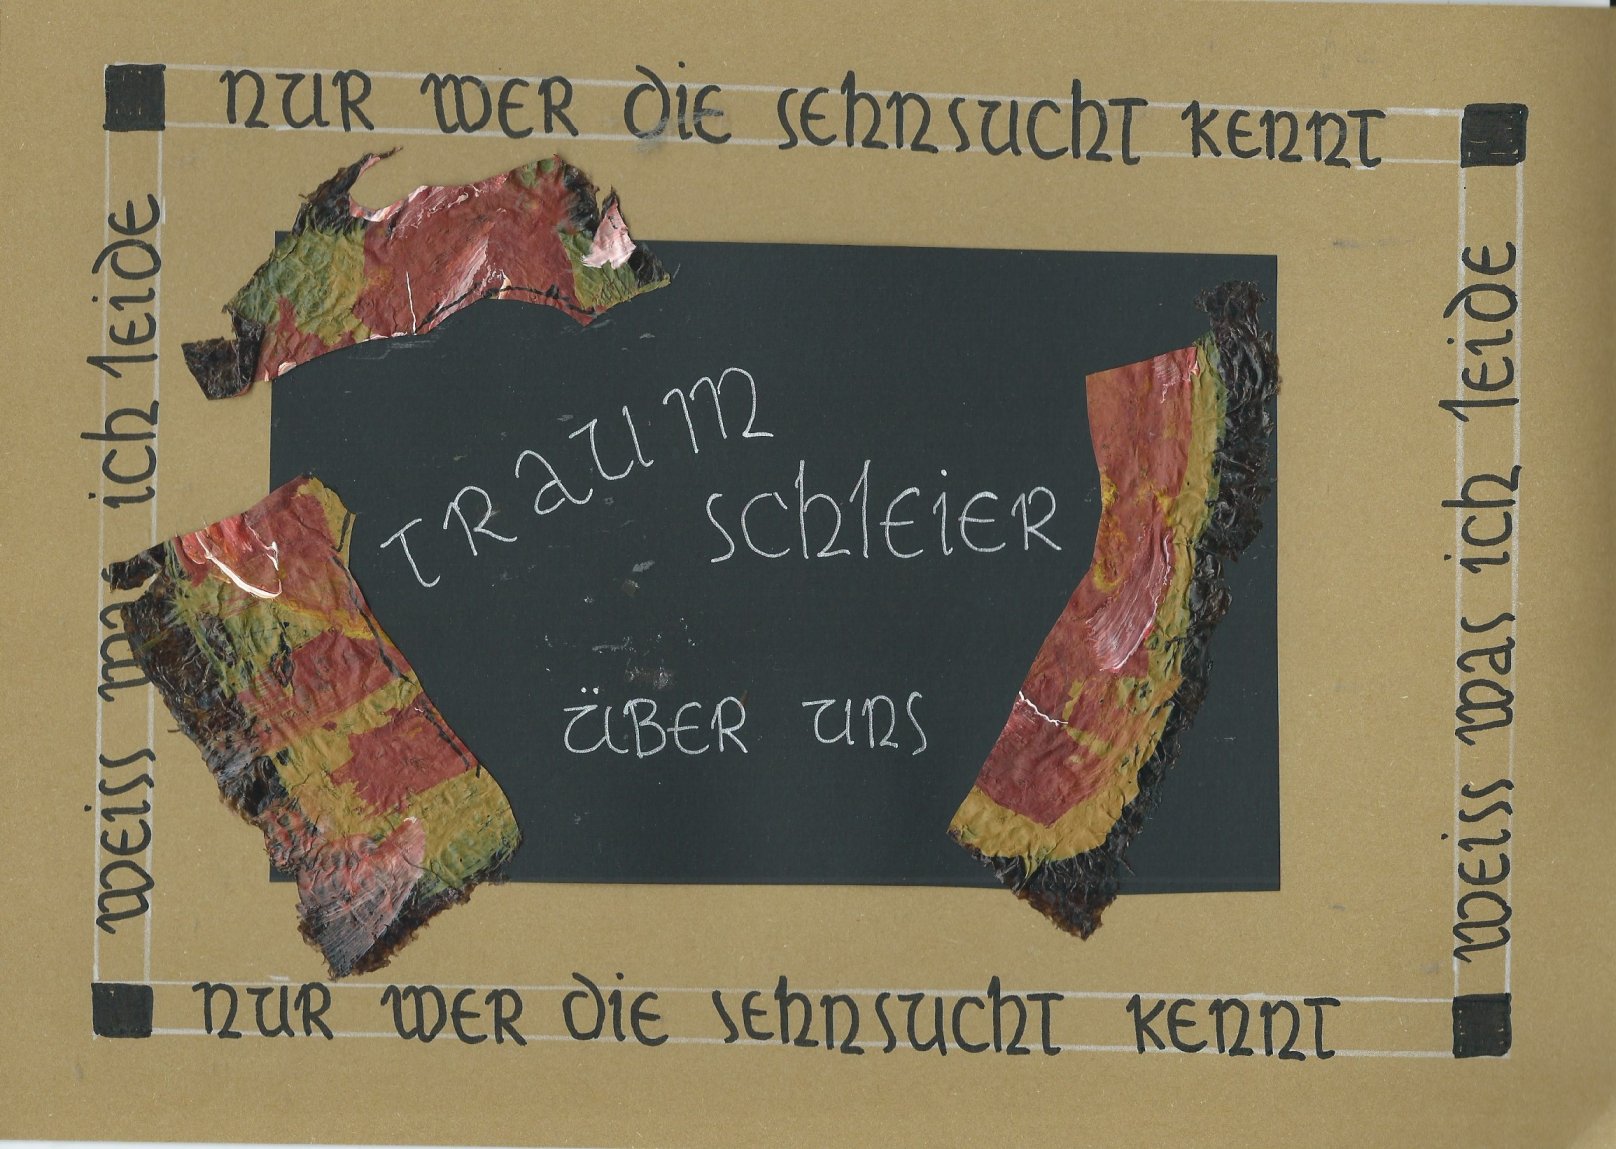 NUR WER DIE SEHNSUCHT KENNT
weiss was ich leide
TRAUM
SCHLEIER
ÜBER UNS
weiss was ich leide
NUR WER DIE SEHNSUCHT KENNT